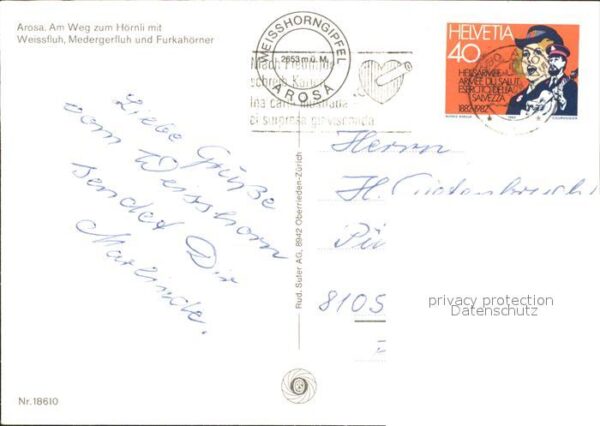 Arosa. Am Weg zum Hörnli mit
Weissfluh, Medergerfluh und Furkahörner
WEISSHORNGIPFEL
2653 m ü. M.
AROSA
HELVETIA
40
HEILSARMEE
ARMEE DU SALUT
ESERCITO DELLA
SALVEZZA
1882-1982
Liebe Grüße
vom Weisshorn
sendet Dir
Marlinde.
Rud. Suter AG, 8942 Oberrieden-Zürich
Herrn
H.
8105
privacy protection
Datenschutz
Nr. 18610